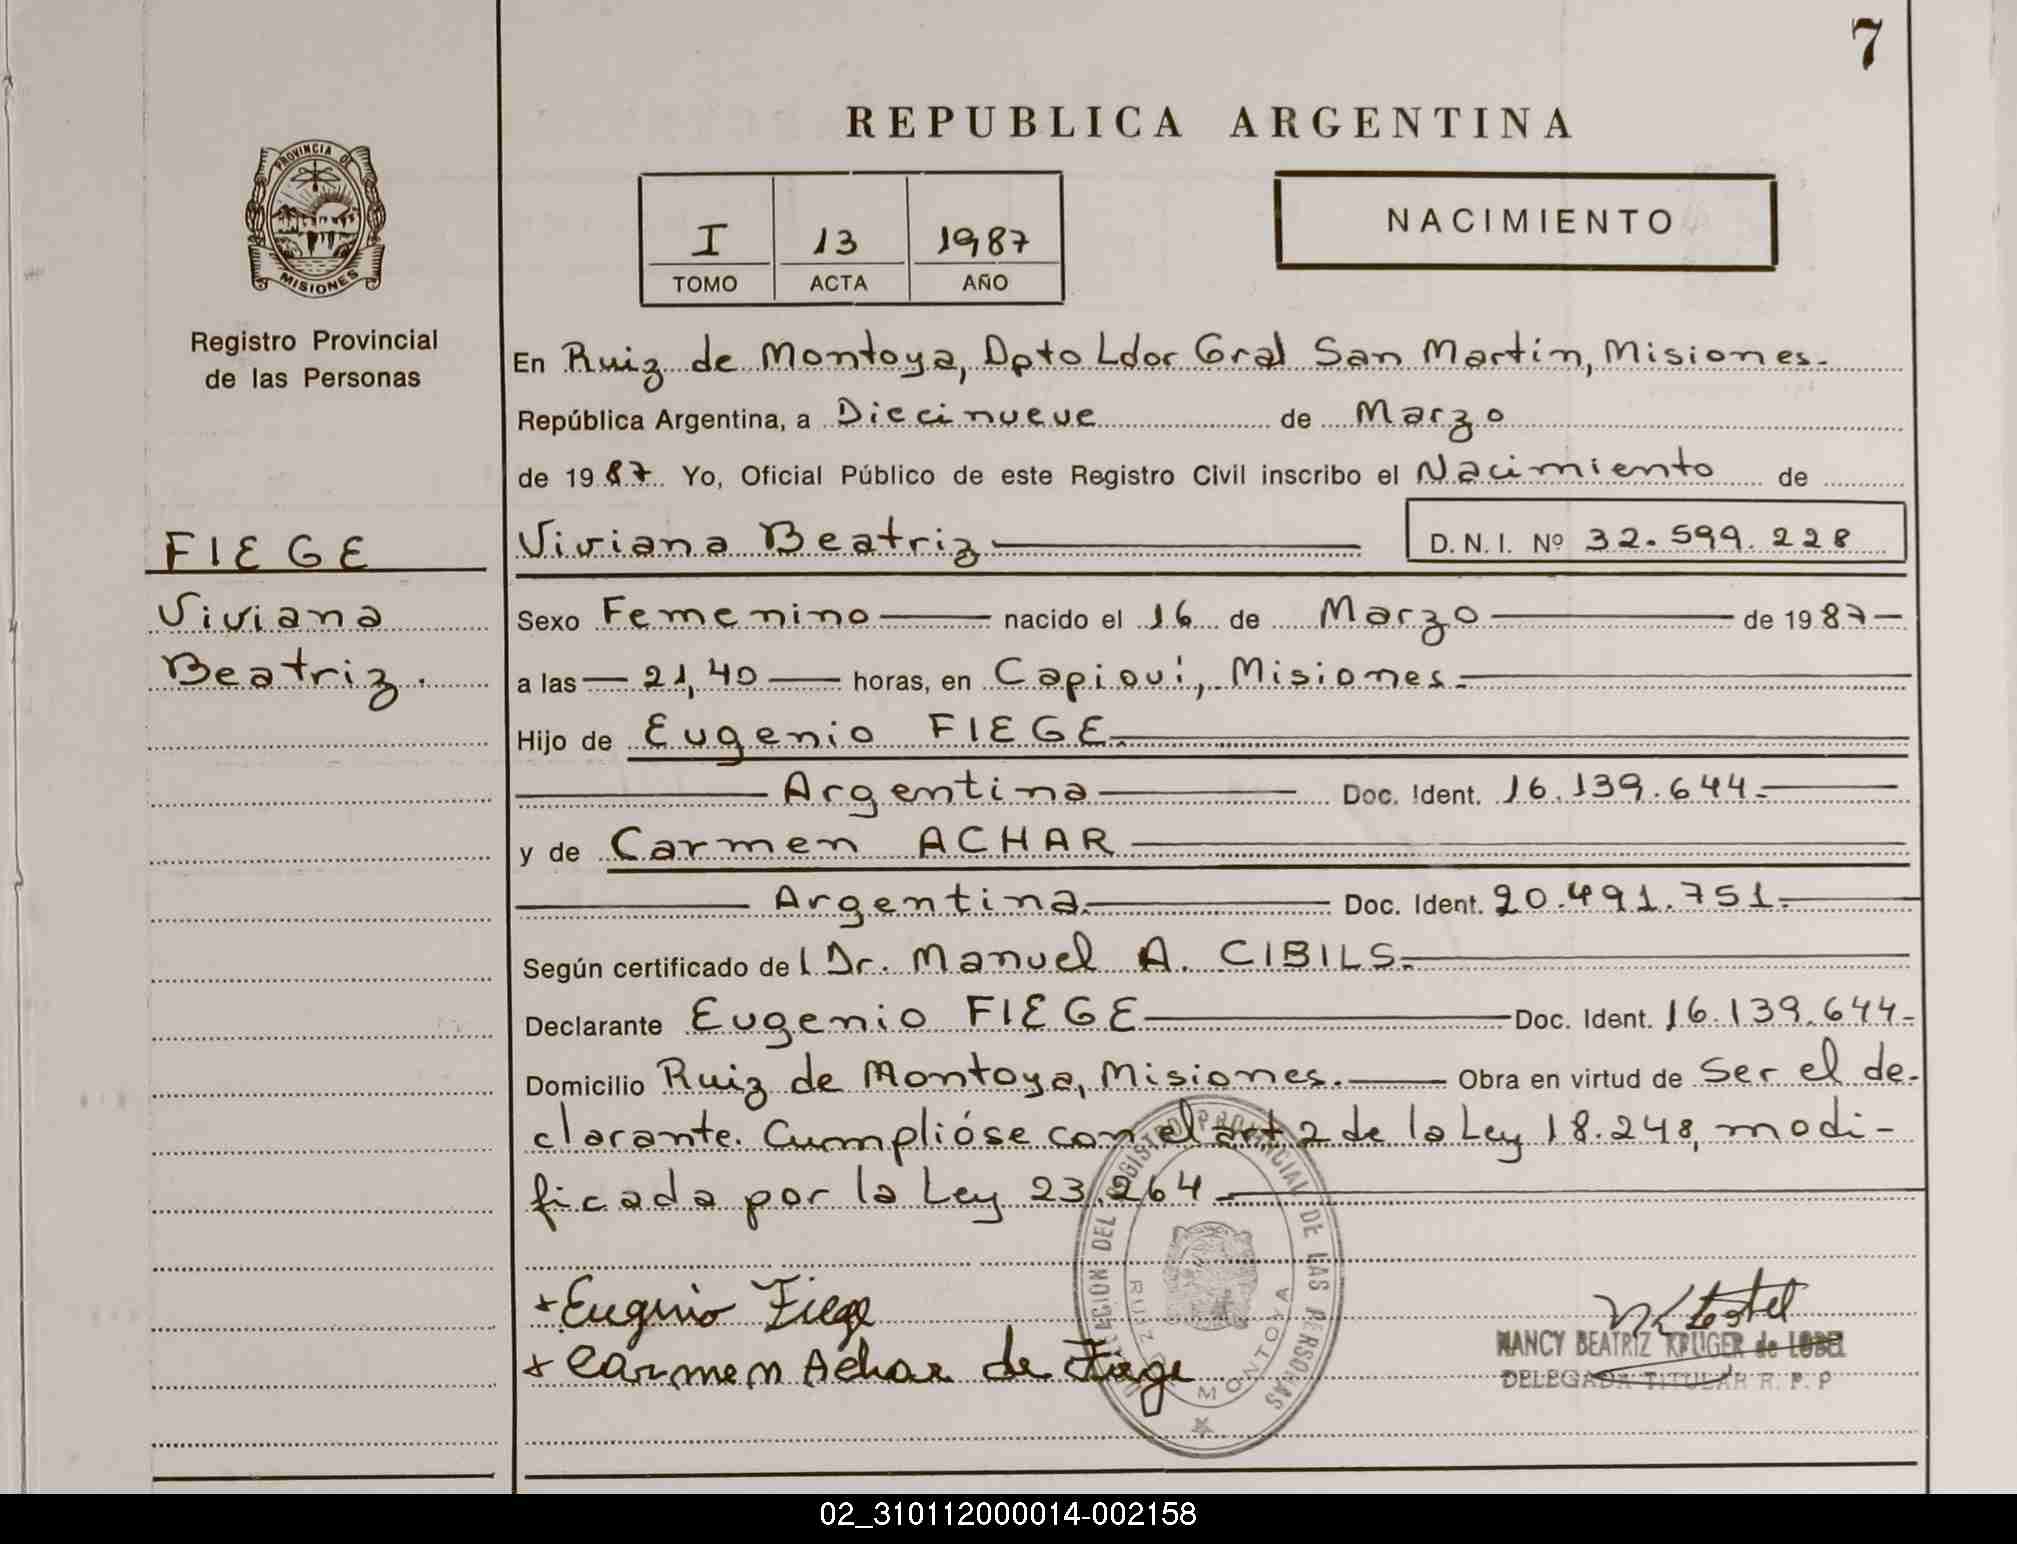 7
REPUBLICA ARGENTINA
PROVINCIA DE
MISIONES
Registro Provincial
de las Personas
I 13 1987
TOMO ACTA AÑO
NACIMIENTO
En Ruiz de Montoya, Dpto Ldor Gral San Martín, Misiones.
República Argentina, a Diecinueve de Marzo
de 1987. Yo, Oficial Público de este Registro Civil inscribo el Nacimiento de
FIEGE
Viviana
Beatriz.
Viviana Beatriz D.N.I. Nº 32.599.228
Sexo Femenino nacido el 16 de Marzo de 1987
a las 21,40 horas, en Capioví, Misiones.
Hijo de Eugenio FIEGE.
Argentina Doc. Ident. 16.139.644.
y de Carmen ACHAR
Argentina. Doc. Ident. 20.491.751.
Según certificado del Dr. Manuel A. CIBILS.
Declarante Eugenio FIEGE Doc. Ident. 16.139.644.
Domicilio Ruiz de Montoya, Misiones. Obra en virtud de Ser el de-
clarante. Cumplióse con el art 2 de la Ley 18.248, modi-
ficada por la Ley 23.264.
+ Eugenio Fiege
+ Carmen Achar de Fiege
DELEGACION DEL REGISTRO PROVINCIAL DE LAS PERSONAS
RUIZ DE MONTOYA
NANCY BEATRIZ KRUGER de LOBEL
DELEGADA TITULAR R. P. P
02_310112000014-002158